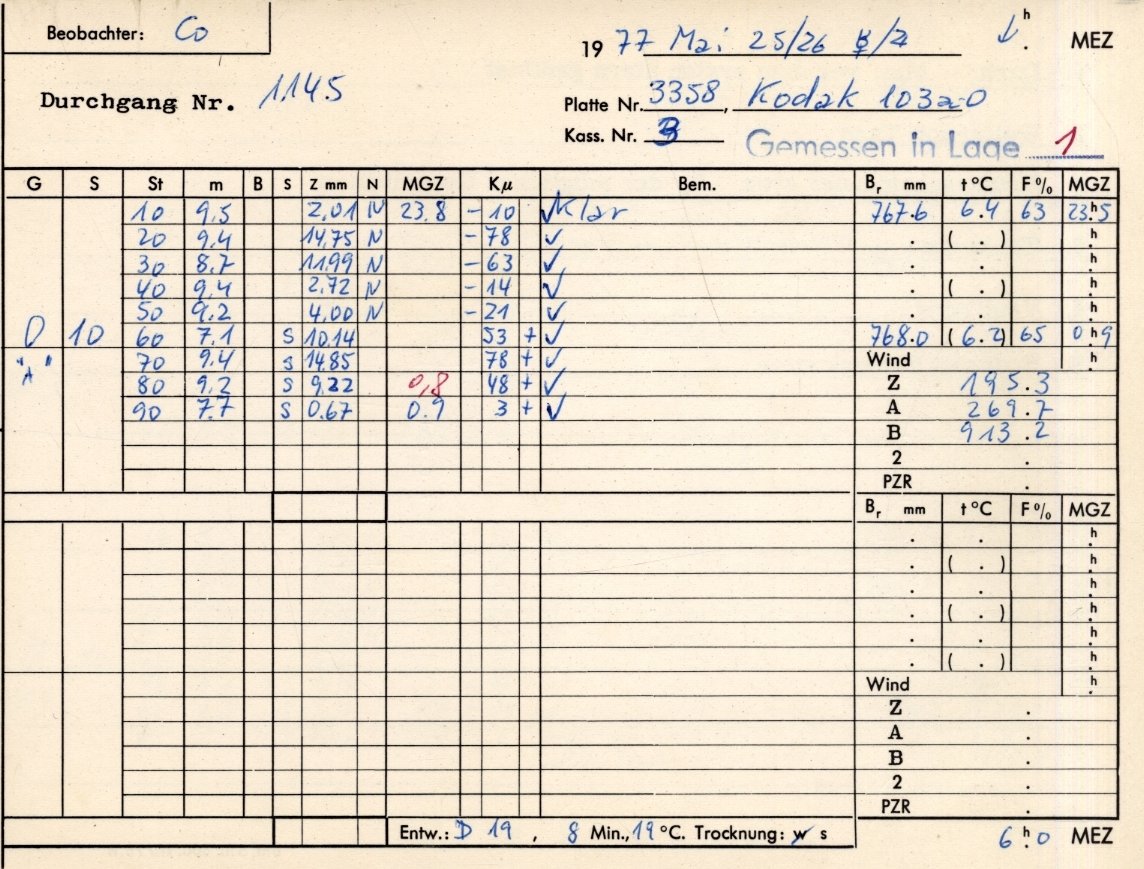 Beobachter: Co
1977 Mai 25/26 h MEZ
Durchgang Nr. 1145
Platte Nr. 3358, Kodak 103a-O
Kass. Nr. 3
Gemessen in Lage 1
G S St m B S Z mm N MGZ Kμ Bem. Br mm t °C F % MGZ
10 9.5 2,01 N 23.8 -10 ✓ Klar 767.6 6.4 63 23.h5
20 9.4 14,75 N -78 ✓ . ( . ) h
30 8.7 11,99 N -63 ✓ . . h
40 9.4 2,72 N -14 ✓ . ( . ) h
50 9.2 4,00 N -21 ✓ . . h
0 10 60 7.1 S 10.14 53 + ✓ 768.0 (6.2) 65 0 h 9
"A" 70 9.4 S 14.85 78 + ✓ Wind h
80 9.2 S 9,22 0,8 48 + ✓ Z 195.3
90 7.7 S 0.67 0.9 3 + ✓ A 269.7
B 913.2
2 .
PZR .
Br mm t °C F % MGZ
. . h
. ( . ) h
. . h
. ( . ) h
. . h
. ( . ) h
Wind h
Z .
A .
B .
2 .
PZR .
Entw.: D 19 , 8 Min., 19 °C. Trocknung: w s
6 h 0 MEZ